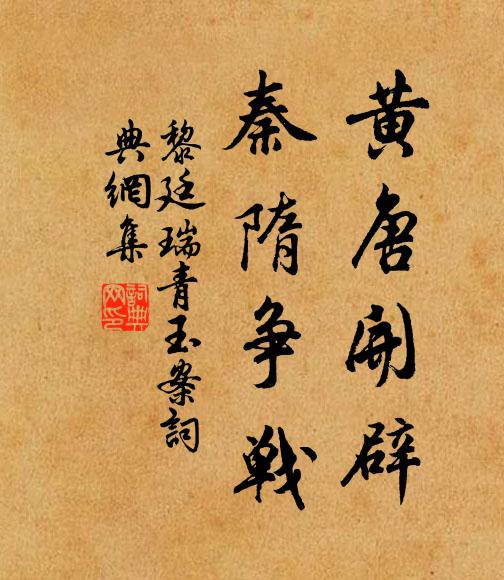 黄唐開辟
秦隋争戦
黎廷瑞青玉案詞
典網集
詞典
网印